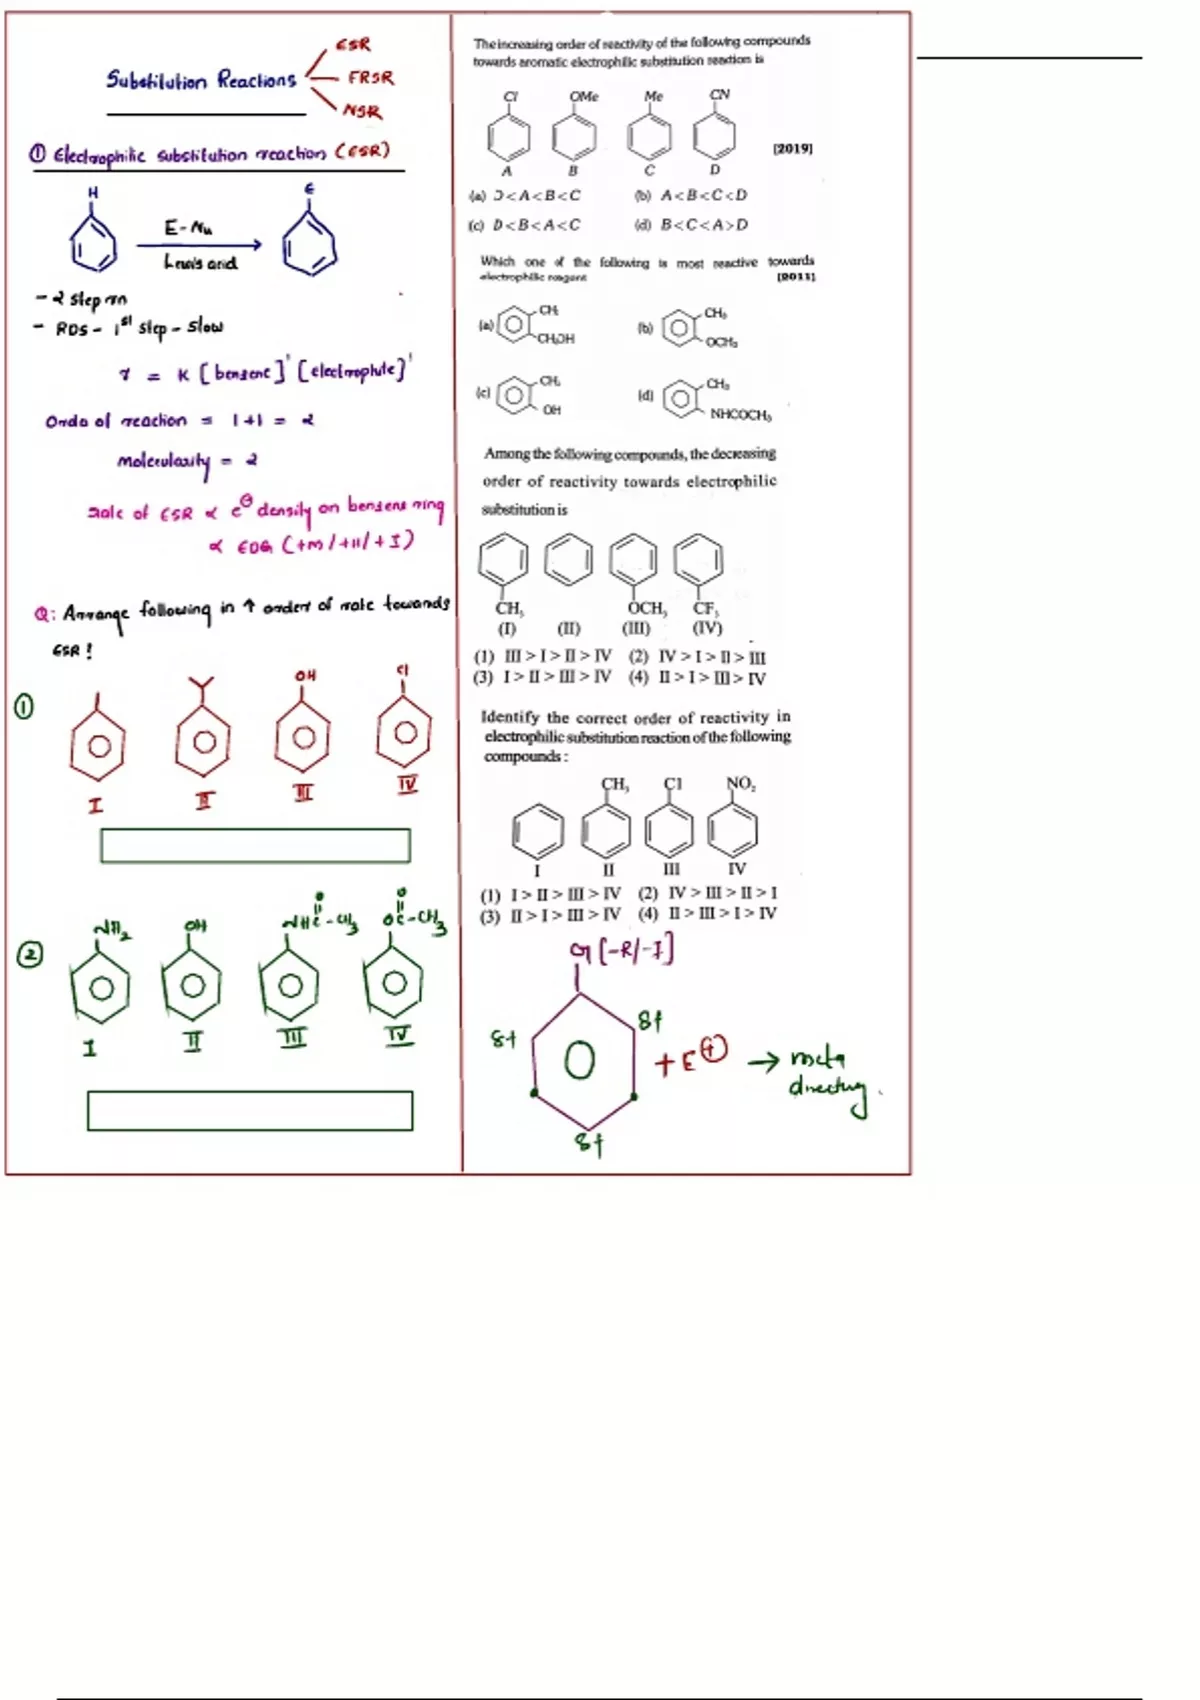 Substitution Reactions
ESR
FRSR
NSR
① Electrophilic substitution reaction (ESR)
H
E
E-Nu
Lewis acid
- 2 step rxn
- RDS - 1st step - slow
r = K [benzene]¹ [electrophile]¹
Order of reaction = 1+1 = 2
Molecularity = 2
Rate of ESR ∝ e⊖ density on benzene ring
∝ EDG (+M/+H/+I)
Q: Arrange following in ↑ order of rate towards
ESR!
①
OH
Cl
I
II
III
IV
②
NH₂
OH
NHC-CH₃
O
OC-CH₃
O
I
II
III
IV
The increasing order of reactivity of the following compounds
towards aromatic electrophilic substitution reaction is
Cl
OMe
Me
CN
[2019]
A
B
C
D
(a) D<A<B<C
(b) A<B<C<D
(c) D<B<A<C
(d) B<C<A>D
Which one of the following is most reactive towards
electrophilic reagent
[2011]
(a)
CH₃
CH₂OH
(b)
CH₃
OCH₃
(c)
CH₃
OH
(d)
CH₃
NHCOCH₃
Among the following compounds, the decreasing
order of reactivity towards electrophilic
substitution is
CH₃
OCH₃
CF₃
(I)
(II)
(III)
(IV)
(1) III > I > II > IV (2) IV > I > II > III
(3) I > II > III > IV (4) II > I > III > IV
Identify the correct order of reactivity in
electrophilic substitution reaction of the following
compounds :
CH₃
Cl
NO₂
I
II
III
IV
(1) I > II > III > IV (2) IV > III > II > I
(3) II > I > III > IV (4) II > III > I > IV
G [-R/-I]
δ+
δ+
+ E⊕ → meta
directing.
δ+